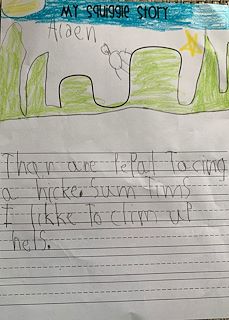 MY Squiggle Story
Aiden
Thar are PePal Tacing
a hicke. Sum Tims
I likke To clim up
hels.